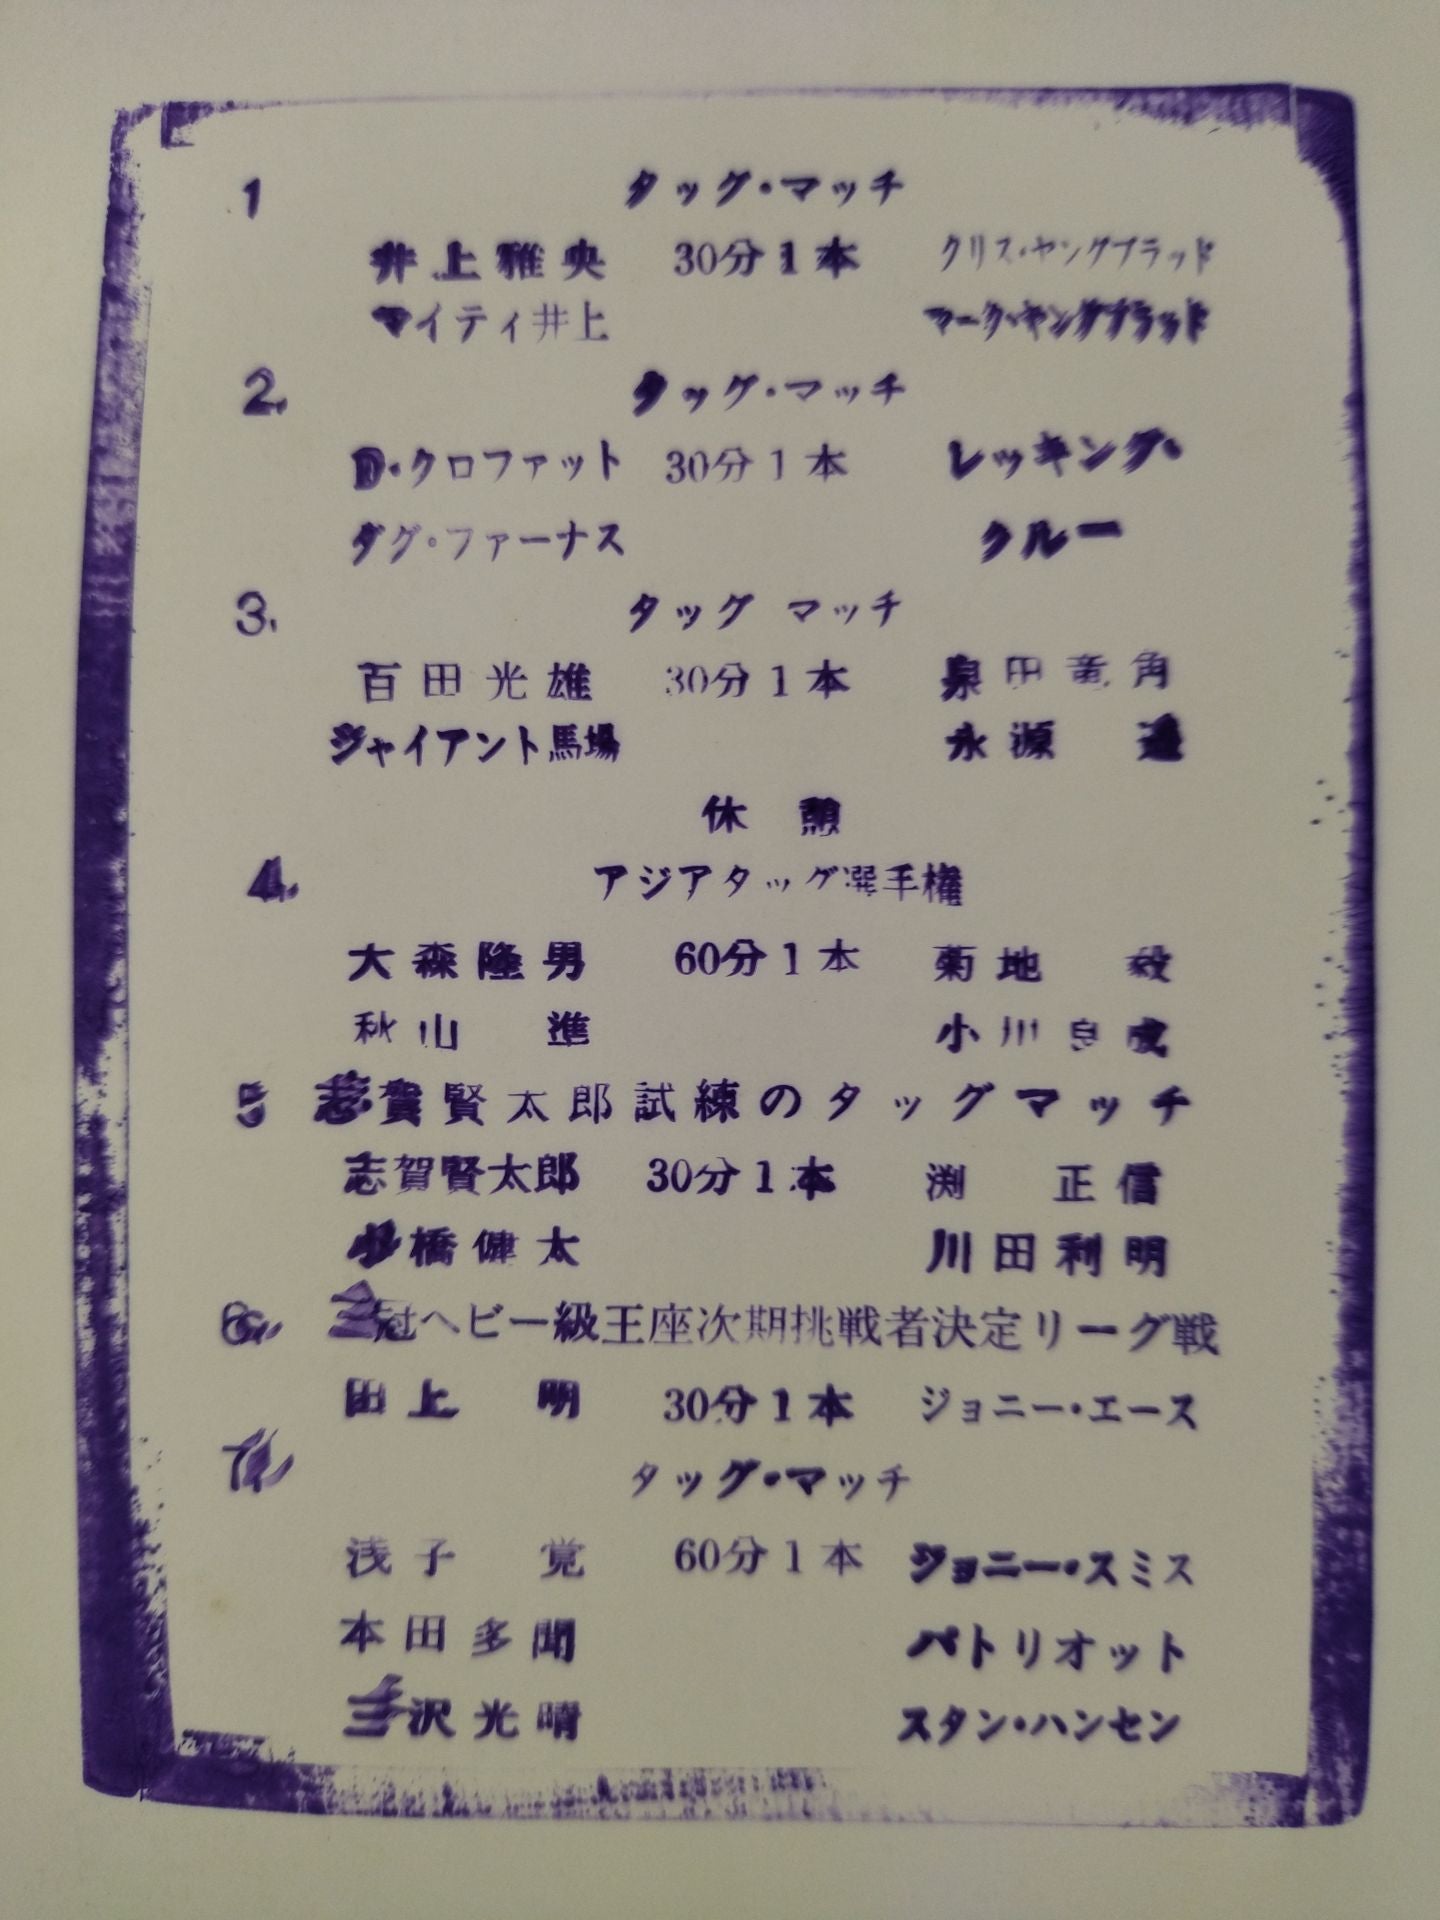 1 タッグ・マッチ
井上雅央 30分1本 クリス・ヤングブラッド
マイティ井上 マーク・ヤングブラッド
2. タッグ・マッチ
D・クロファット 30分1本 レッキング・
ダグ・ファーナス クルー
3. タッグ マッチ
百田光雄 30分1本 泉田竜角
ジャイアント馬場 永源 遥
休憩
4. アジアタッグ選手権
大森隆男 60分1本 菊地 毅
秋山 準 小川良成
5 志賀賢太郎試練のタッグマッチ
志賀賢太郎 30分1本 渕 正信
小橋健太 川田利明
6. 三冠ヘビー級王座次期挑戦者決定リーグ戦
田上 明 30分1本 ジョニー・エース
7. タッグ・マッチ
浅子 覚 60分1本 ジョニー・スミス
本田多聞 パトリオット
三沢光晴 スタン・ハンセン